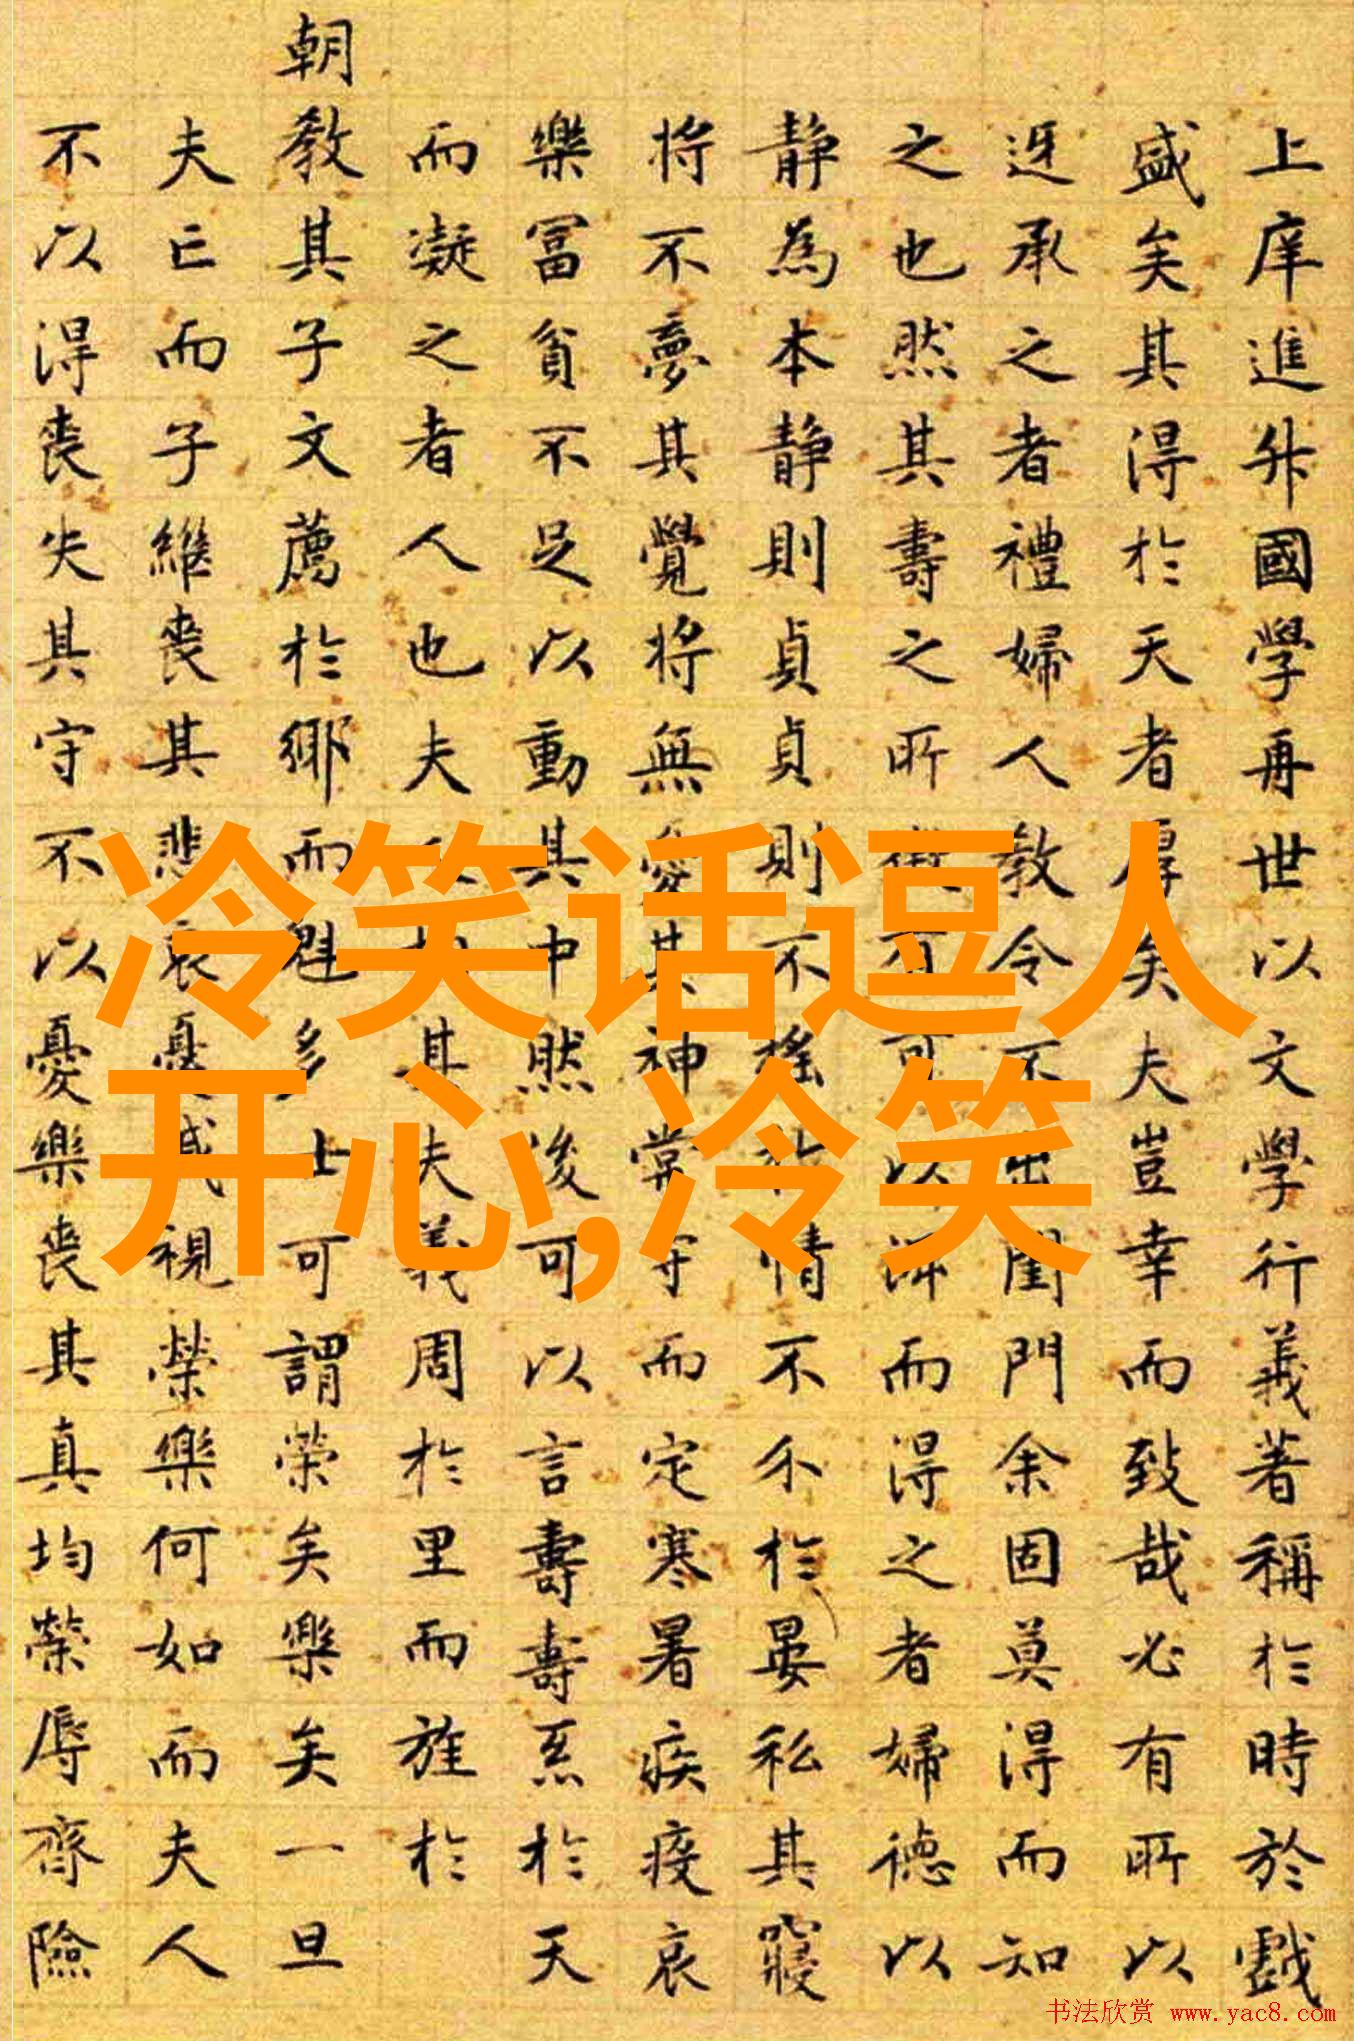 上庠進升國學再世以文學行義著稱於時於戲
盛矣其得於天者厚矣夫豈幸而致哉必有所以
迓承之者禮婦人教令不出閨門余固莫得而知
之也然其壽之所徵有可以淂而得之者婦德以
静為本静則貞貞則不搖於情不介於晏私其寢
将不夢其覺将無憂其神常守而定寒暑疾疫哀
樂冨貧不足以動其中然後可以言壽壽系於天
而凝之者人也夫人相其夫義周於里而旌於
朝教其子文薦於鄉而魁多士可謂榮矣樂矣一旦
夫亡而子繼喪其悲哀憂戚視榮樂何如而夫人
不以得喪失其守不以憂樂喪其真均榮辱齊險
冷笑话逗人
开心,冷笑
书法欣赏 www.yac8.com